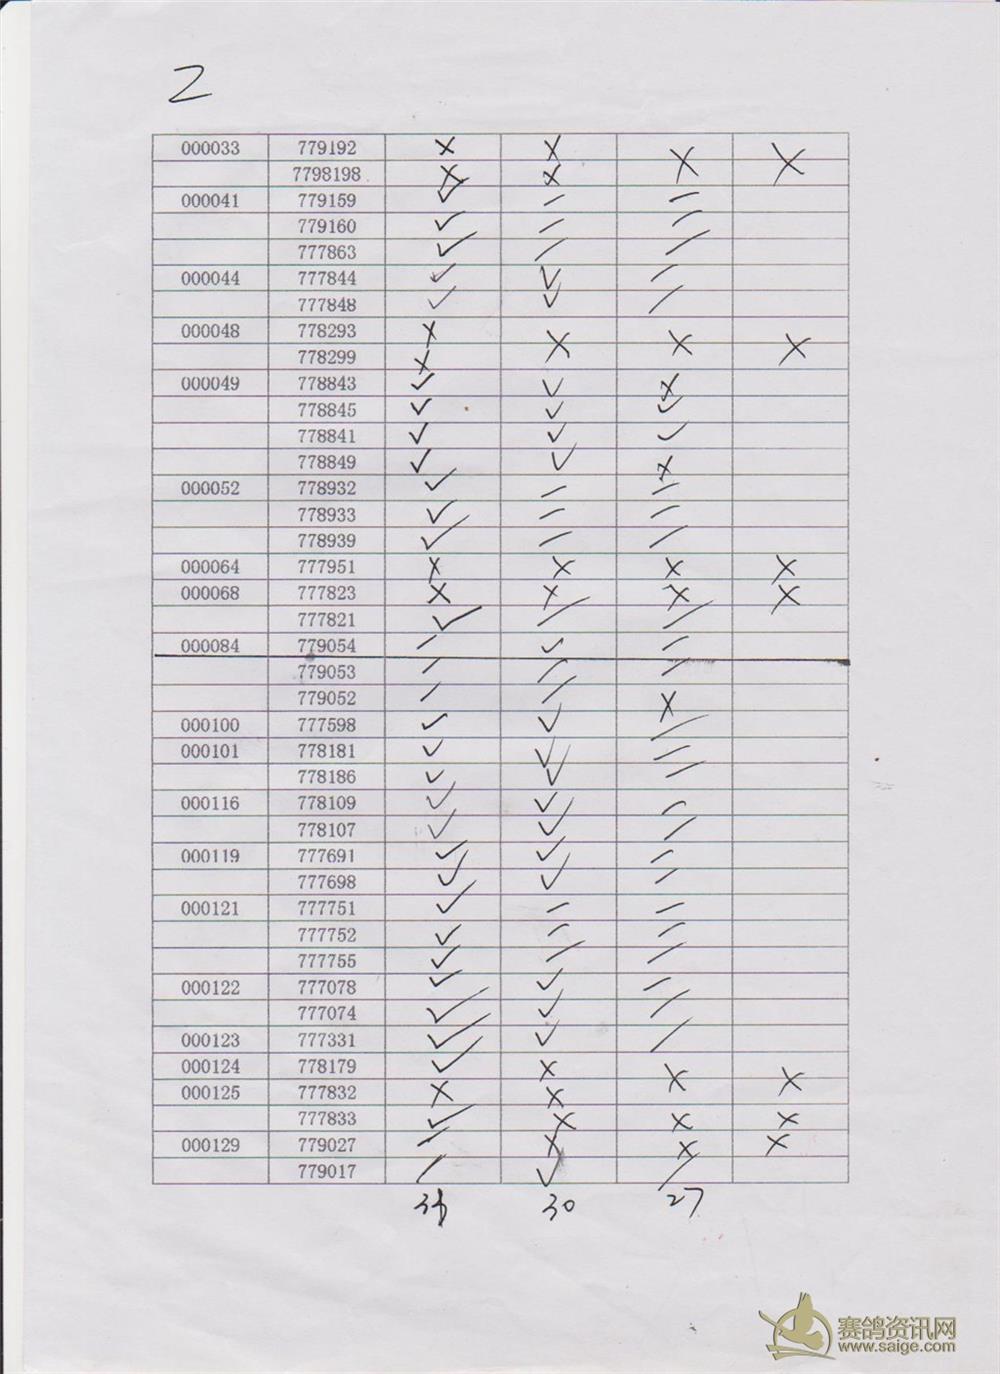 2
000033 779192 × × × ×
7798198 × ×
000041 779159 ✓ — —
779160 ✓ — —
777863 ✓ — —
000044 777844 ✓ ✓ —
777848 ✓ ✓ —
000048 778293 × × × ×
778299 ×
000049 778843 ✓ ✓ ×
778845 ✓ ✓ ✓
778841 ✓ ✓ ✓
778849 ✓ ✓ ×
000052 778932 ✓ — —
778933 ✓ — —
778939 ✓ — —
000064 777951 × × × ×
000068 777823 × × × ×
777821 ✓ — —
000084 779054 — ✓ —
779053 — — —
779052 — — ×
000100 777598 ✓ ✓ —
000101 778181 ✓ ✓ —
778186 ✓ ✓ —
000116 778109 ✓ ✓ —
778107 ✓ ✓ —
000119 777691 ✓ ✓ —
777698 ✓ ✓ —
000121 777751 ✓ — —
777752 ✓ — —
777755 ✓ — —
000122 777078 ✓ ✓ —
777074 ✓ ✓ —
000123 777331 ✓ ✓ —
000124 778179 ✓ × × ×
000125 777832 × ×
777833 ✓ × × ×
000129 779027 — × × ×
779017 — ✓ —
30 27
赛鸽资讯网
www.saige.com